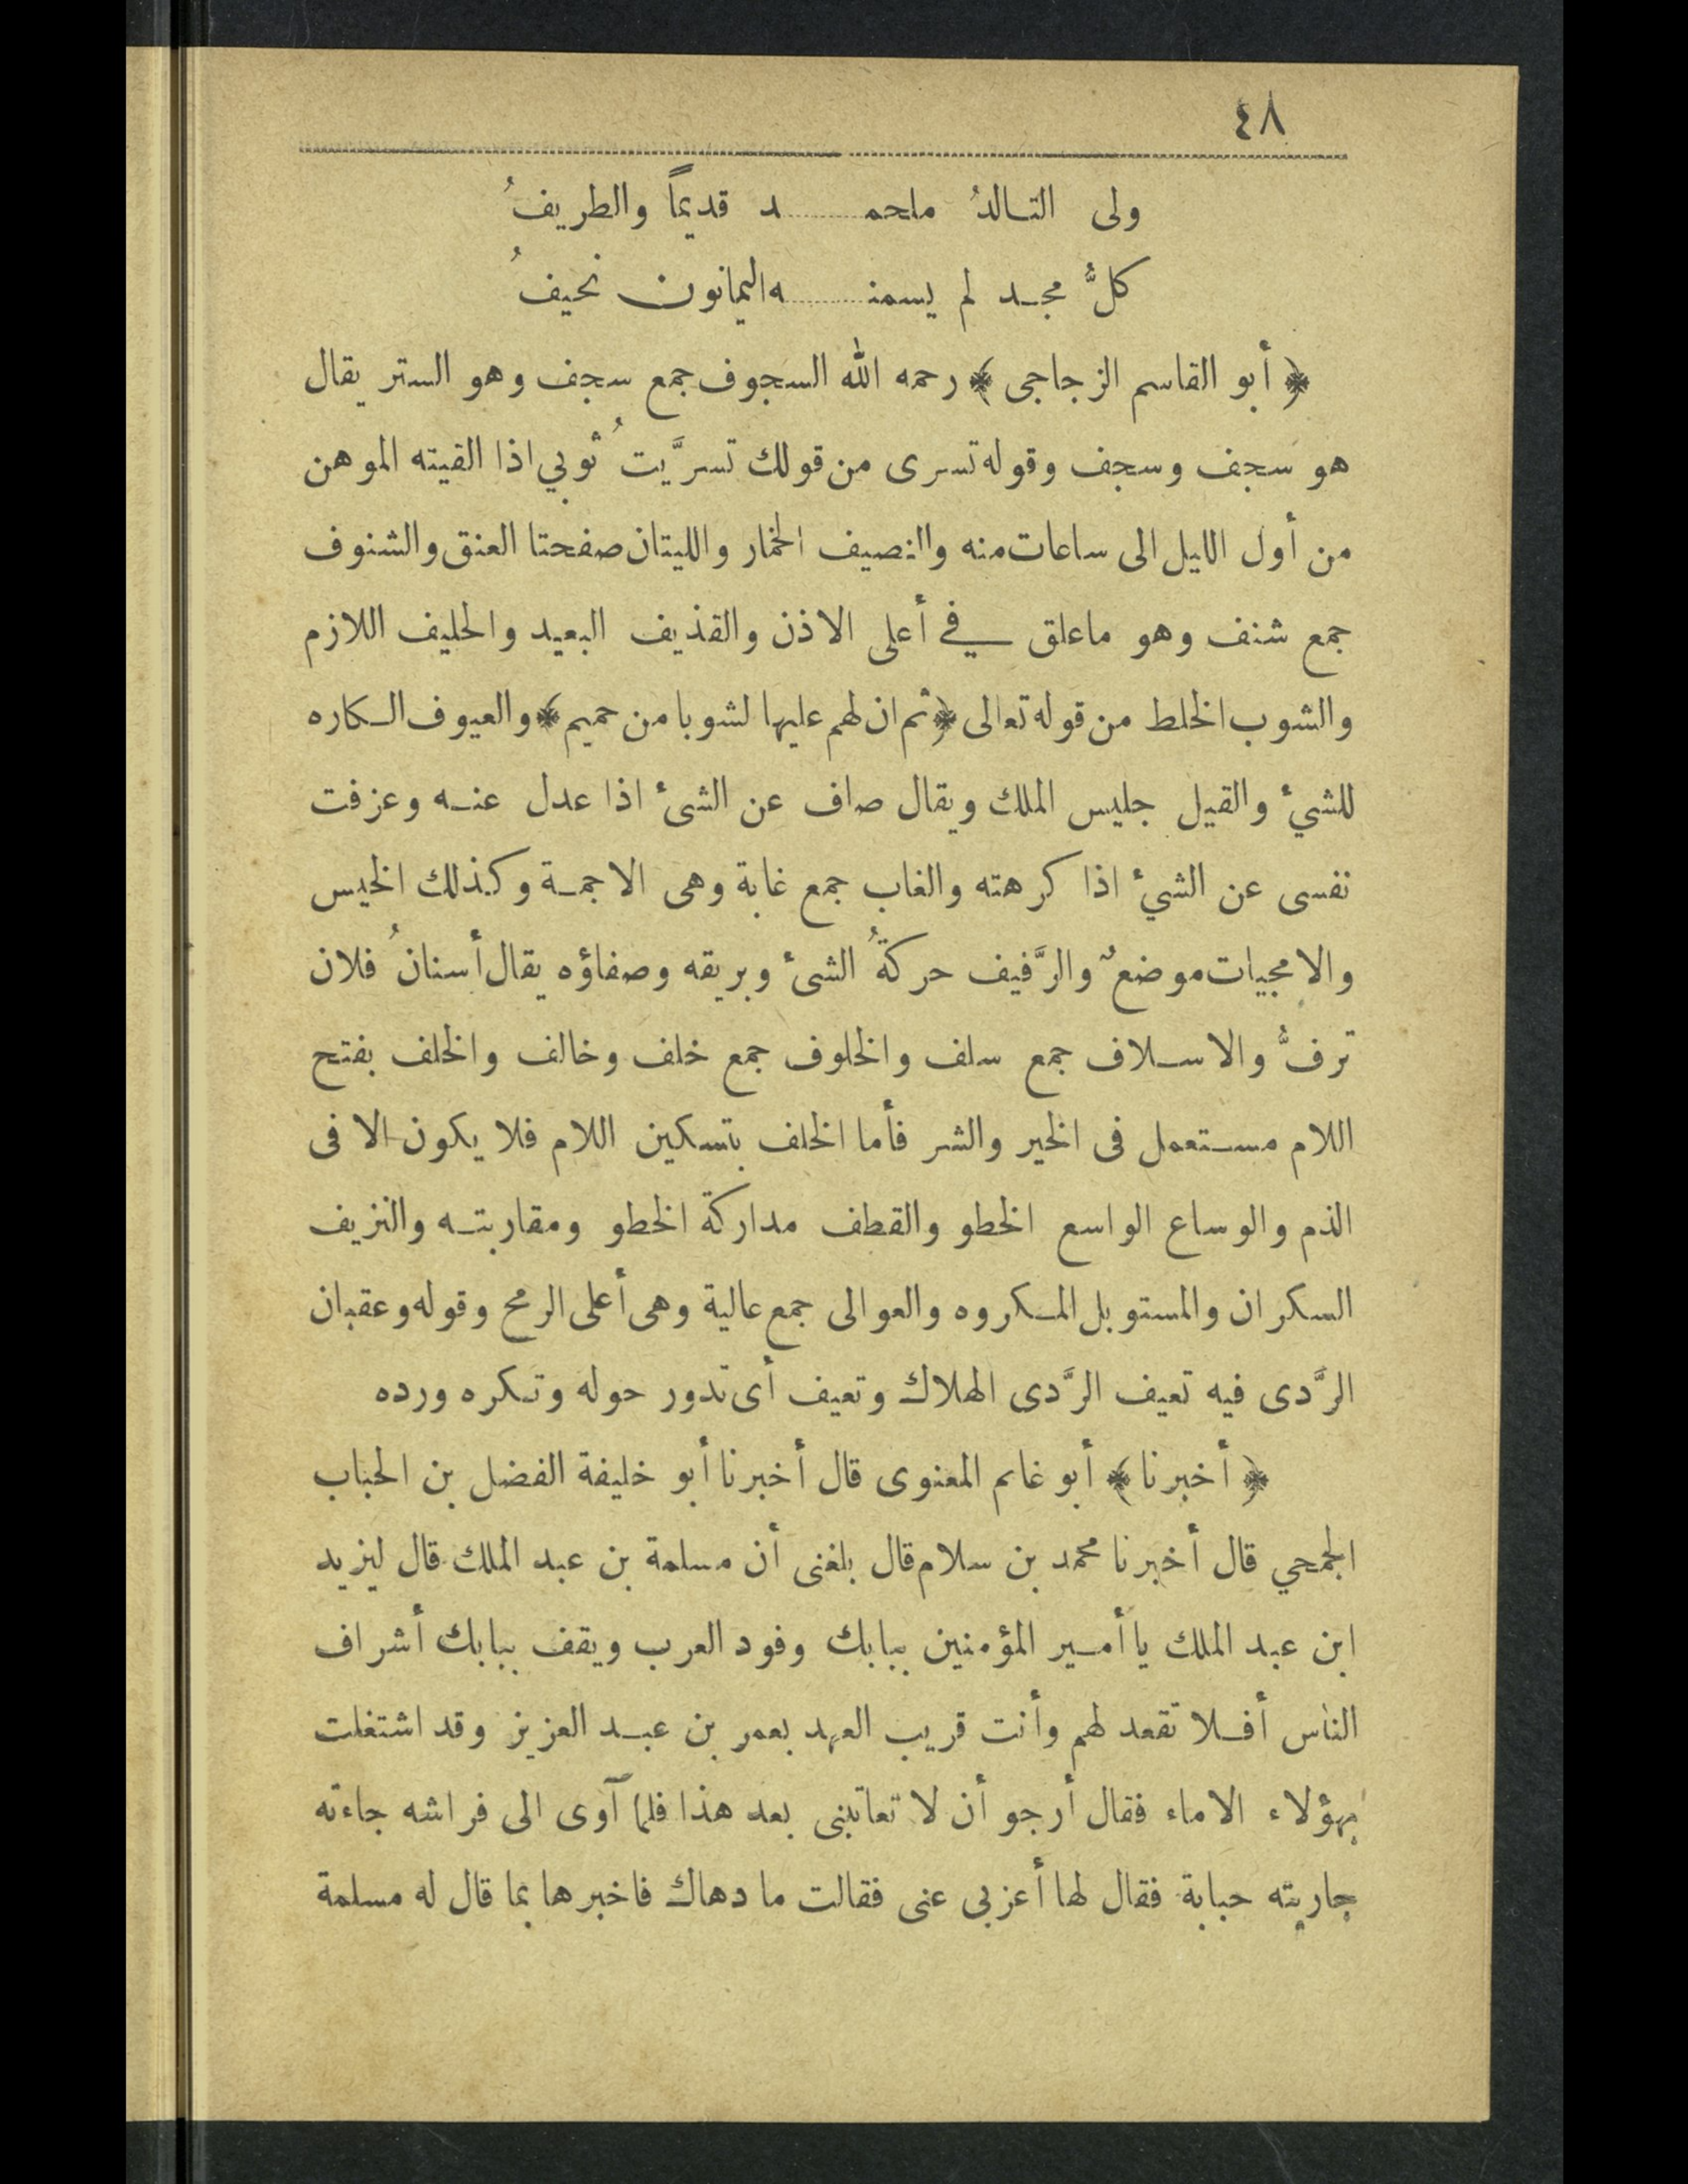 ٤٨
ولى التالدُ ملحمـ ... ـد قديماً والطريفُ
كلُّ مجد لم يسمنـ ... ـه اليمانون نحيفُ
﴿ أبو القاسم الزجاجى ﴾ رحمه الله السجوف جمع سجف وهو الستر يقال
هو سجف وسجف وقوله تسرى من قولك تسرَّيتُ ثوبي اذا القيته الموهن
من أول الليل الى ساعات منه والنصيف الخمار والليتان صفحتا العنق والشنوف
جمع شنف وهو ماعلق في أعلى الاذن والقذيف البعيد والحليف اللازم
والشوب الخلط من قوله تعالى ﴿ثم ان لهم عليها لشوبا من حميم﴾ والعيوف الكاره
للشيء والقيل جليس الملك ويقال صاف عن الشىء اذا عدل عنه وعزفت
نفسى عن الشيء اذا كرهته والغاب جمع غابة وهى الاجمة وكذلك الخيس
والامجيات موضعٌ والرَّفيف حركةُ الشىء وبريقه وصفاؤه يقال أسنانُ فلان
ترفُّ والاسلاف جمع سلف والخلوف جمع خلف وخالف والخلف بفتح
اللام مستعمل فى الخير والشر فأما الخلف بتسكين اللام فلا يكون الا فى
الذم والوساع الواسع الخطو والقطف مداركة الخطو ومقاربته والنزيف
السكران والمستوبل المكروه والعوالى جمع عالية وهى أعلى الرمح وقوله وعقبان
الرَّدى فيه تعيف الرَّدى الهلاك وتعيف أى تدور حوله وتكره ورده
﴿ أخبرنا ﴾ أبو غانم المعنوى قال أخبرنا أبو خليفة الفضل بن الحباب
الجمحي قال أخبرنا محمد بن سلام قال بلغنى أن مسلمة بن عبد الملك قال ليزيد
ابن عبد الملك يا أمير المؤمنين ببابك وفود العرب ويقف ببابك أشراف
الناس أفلا تقعد لهم وأنت قريب العهد بعمر بن عبد العزيز وقد اشتغلت
بهؤلاء الاماء فقال أرجو أن لا تعاتبنى بعد هذا فلما آوى الى فراشه جاءته
جاريته حبابة فقال لها أعزبى عنى فقالت ما دهاك فاخبرها بما قال له مسلمة